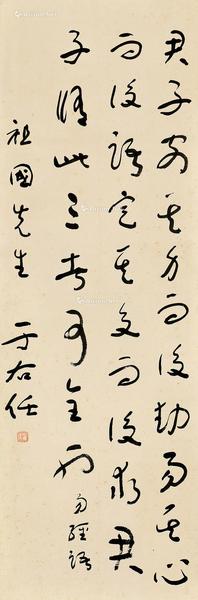 君子安其身而後動易其心
而後語定其交而後求君
子脩此三者故全也 易經語
祖國先生 于右任